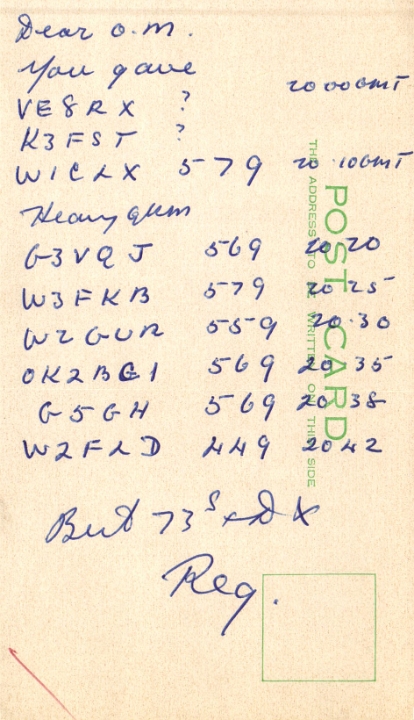 Dear O.M.
You gave
2000GMT
VE8RX ?
K3FST ?
W1CLX 579 20 10GMT
Heavy QRM
G3VQJ 569 20 20
W3FKB 579 20 25
W2GUR 559 20.30
OK2BG1 569 20 35
G5GH 569 20 38
W2FLD 449 20 42
Best 73s + DX
Reg.
POST CARD
THE ADDRESS TO BE WRITTEN ON THIS SIDE